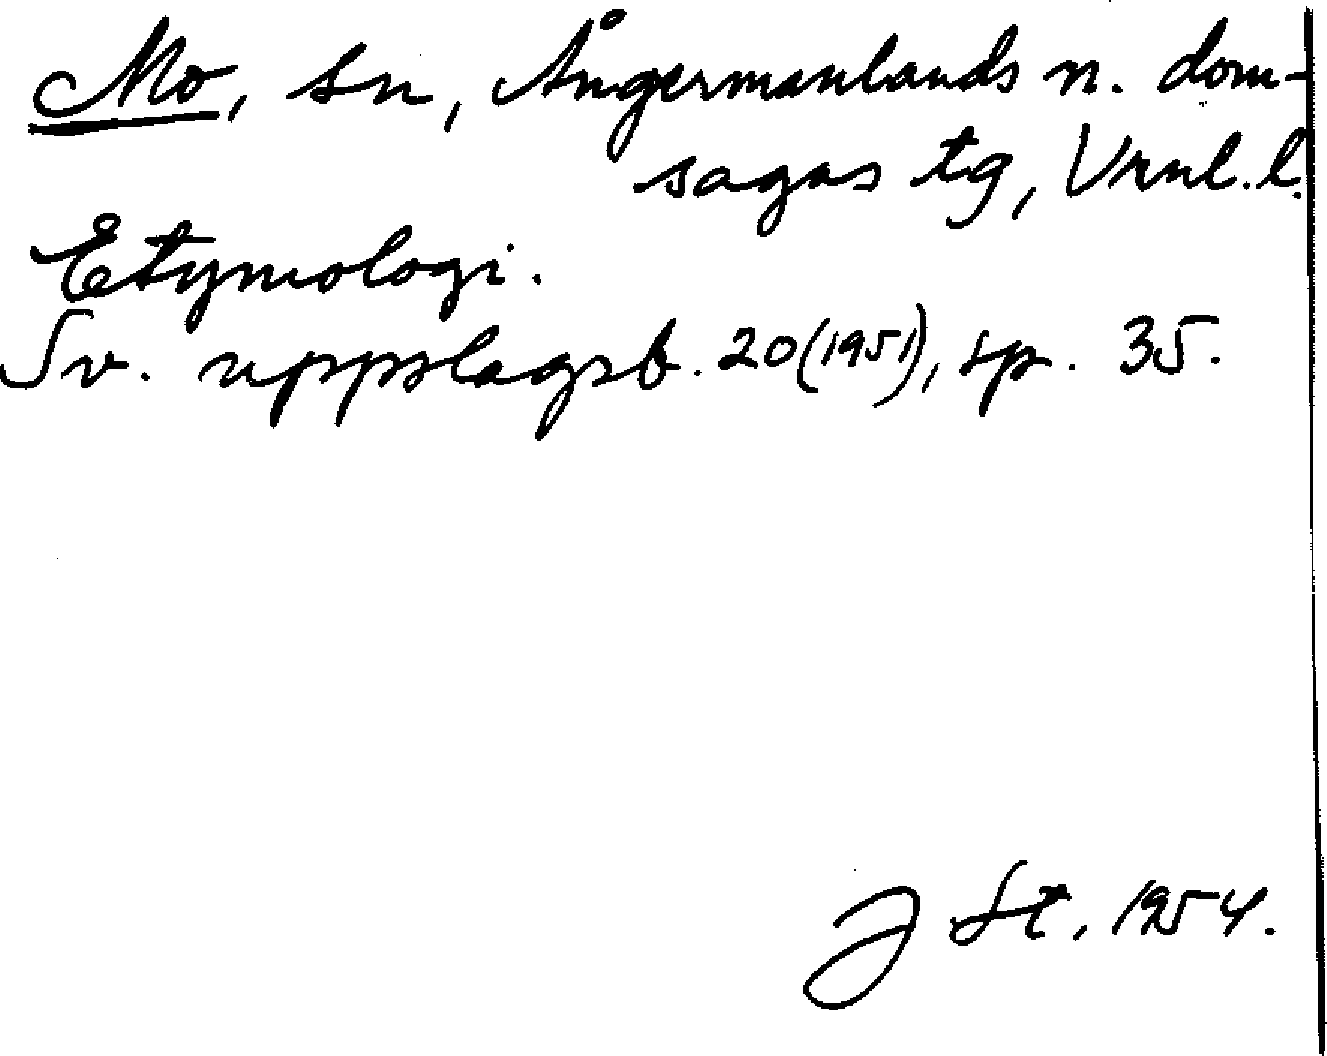 Mo, sn, Ångermanlands n. dom-
sagas tg, Vrnl. l.
Etymologi.
Sv. uppslagsb. 20 (1951), sp. 35.
J St, 1954.